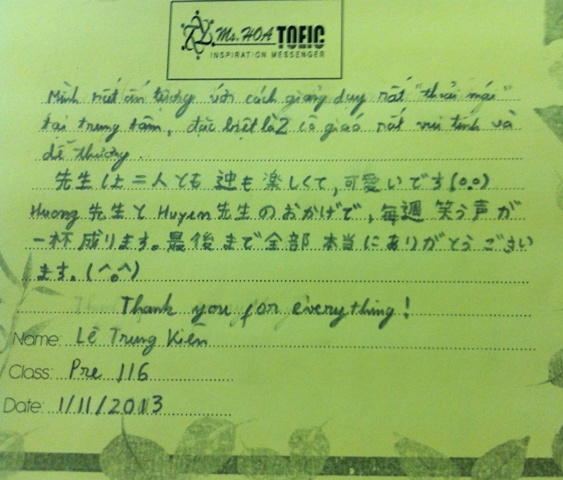 Ms. HOA TOEIC
INSPIRATION MESSENGER
Mình rất ấn tượng với cách giảng dạy rất "thoải mái"
tại trung tâm, đặc biệt là 2 cô giáo rất vui tính và
dễ thương.
先生は二人とも 迚も 楽しくて,可愛いです(0.0)
Huong 先生と Huyen 先生のおかげで,毎週 笑う声が
一杯成ります。最後まで全部 本当にありがとうござい
ます。(^o^)
Thank you for everything!
Name: Lê Trung Kiên
Class: Pre 116
Date: 1/11/2013